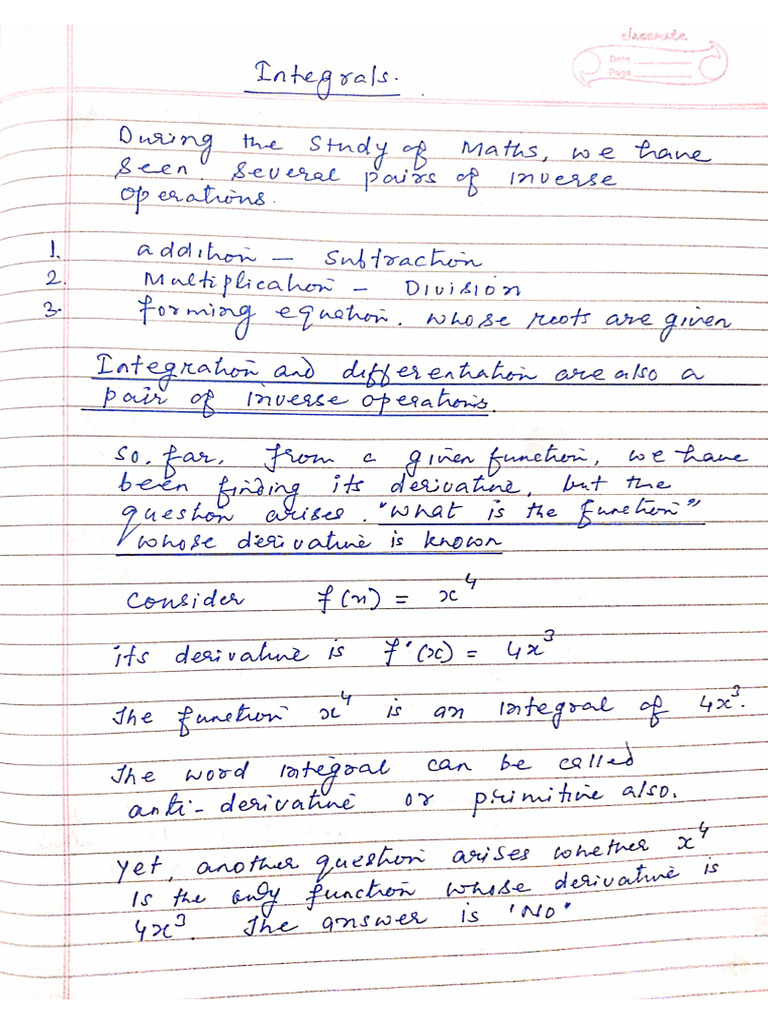 classmate
Date
Page
Integrals.
During the study of Maths, we have
seen. several pairs of inverse
operations.
1. addition – subtraction
2. Multiplication – Division
3. forming equation. whose roots are given
Integration and differentiation are also a
pair of inverse operations.
so. far, from a given function, we have
been finding its derivative, but the
question arises. "what is the function"
whose derivative is known
Consider f(x) = x⁴
its derivative is f'(x) = 4x³
The function x⁴ is an integral of 4x³.
The word integral can be called
anti-derivative or primitive also.
Yet, another question arises whether x⁴
is the only function whose derivative is
4x³. The answer is 'NO'